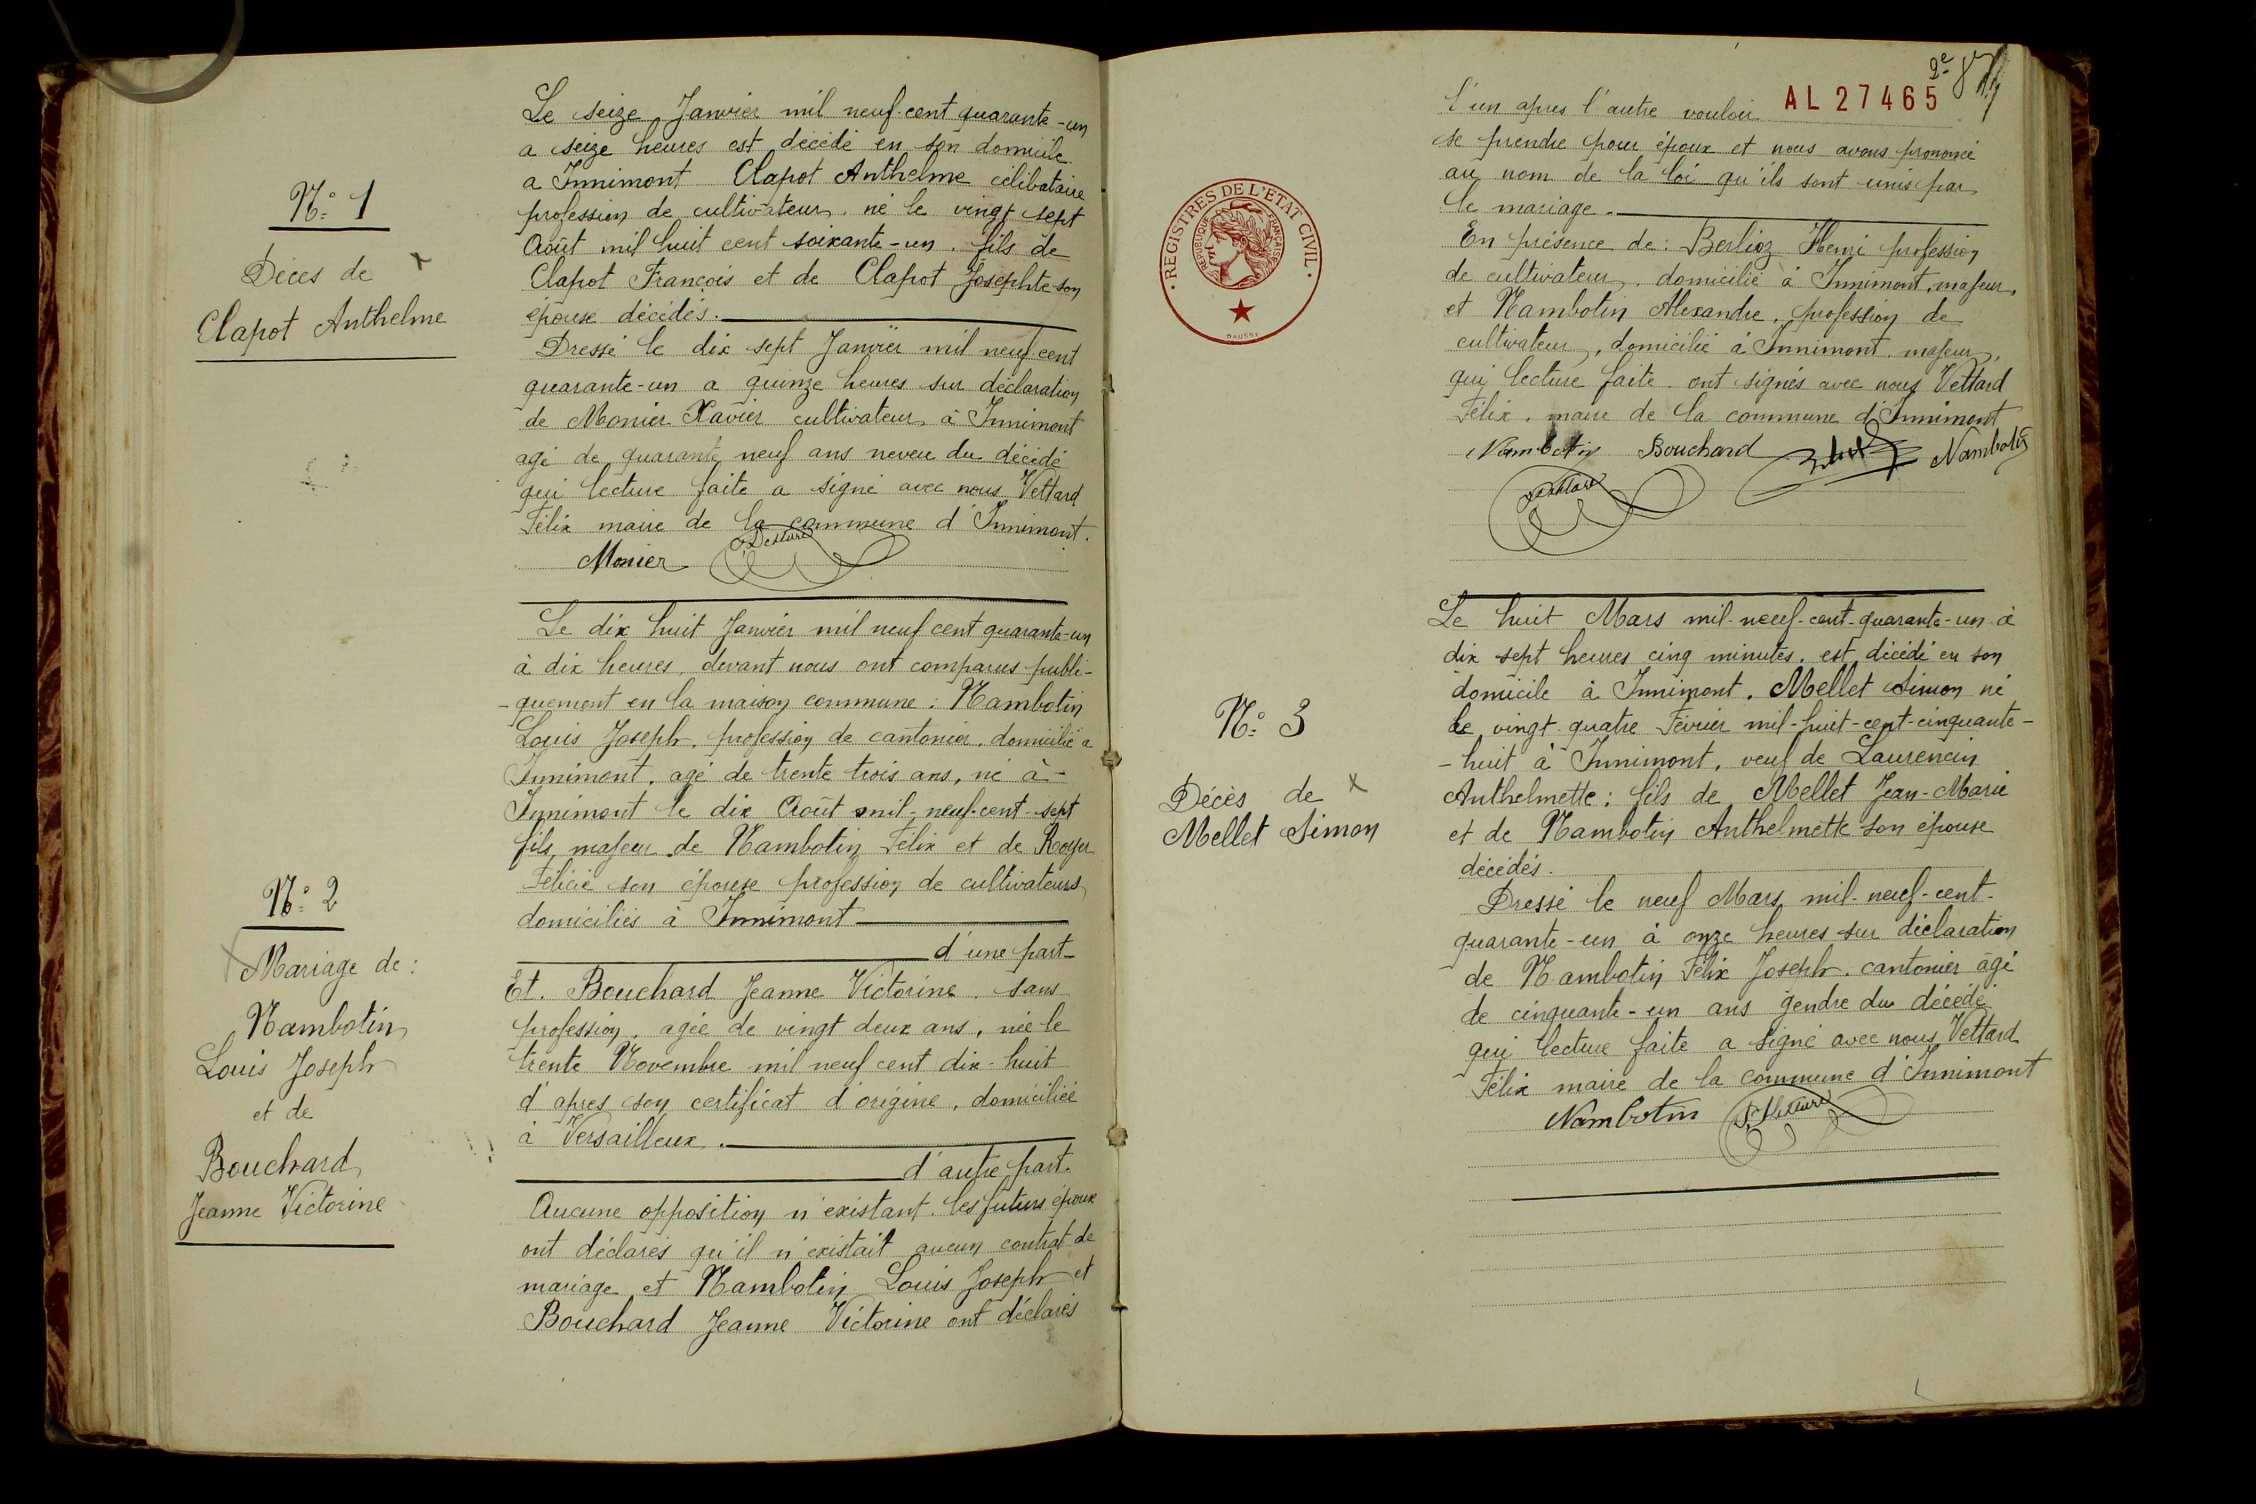 N° 1
Décès de
Clapot Anthelme
Le seize Janvier mil neuf-cent quarante-un
a seize heures est décédé en son domicile
a Innimont Clapot Anthelme célibataire
profession de cultivateur. né le vingt sept
Août mil huit cent soixante-un. fils de
Clapot François et de Clapot Josephte son
épouse décédés.
Dressé le dix sept Janvier mil neuf cent
quarante-un a quinze heures sur déclaration
de Monier Xavier cultivateur à Innimont
agé de quarante neuf ans neveu du décédé
qui lecture faite a signé avec nous Vettard
Félix maire de la commune d'Innimont.
Monier
N° 2
Mariage de :
Nambotin
Louis Joseph
et de
Bouchard
Jeanne Victorine
Le dix huit Janvier mil neuf cent quarante-un
à dix heures, devant nous ont comparus publi-
-quement en la maison commune : Nambotin
Louis Joseph, profession de cantonier, domicilié a
Innimont, agé de trente trois ans, né à -
Innimont le dix Août mil-neuf-cent-sept
fils majeur de Nambotin Félix et de Royer
Félicie son épouse profession de cultivateurs
domiciliés à Innimont
d'une part
Et. Bouchard Jeanne Victorine. sans
profession. agée de vingt deux ans, née le
trente Novembre mil neuf cent dix-huit
d'apres son certificat d'origine, domiciliée
à Versailleux.
d'autre part.
Aucune opposition n'existant. les futurs époux
ont déclarés qu'il n'existait aucun contrat de
mariage et Nambotin Louis Joseph et
Bouchard Jeanne Victorine ont déclarés
2e
AL 27465
REGISTRES DE L'ETAT CIVIL
REPUBLIQUE FRANCAISE
l'un apres l'autre vouloir
se prendre pour époux et nous avons prononcé
au nom de la loi qu'ils sont unis par
le mariage.
En présence de : Berlioz Henri profession
de cultivateur, domicilié à Innimont, majeur,
et Nambotin Alexandre, profession de
cultivateur, domicilié à Innimont. majeur,
qui lecture faite. ont signés avec nous Vettard
Félix. maire de la commune d'Innimont
Nambotin Bouchard Nambotin
N° 3
Décès de
Mellet Simon
Le huit Mars mil-neuf-cent-quarante-un à
dix sept heures cinq minutes. est décédé en son
domicile à Innimont. Mellet Simon né
le vingt-quatre Février mil-huit-cent-cinquante-
-huit à Innimont, veuf de Laurencin
Anthelmette ; fils de Mellet Jean-Marie
et de Nambotin Anthelmette son épouse
décédés.
Dressé le neuf Mars mil-neuf-cent-
quarante-un à onze heures sur déclaration
de Nambotin Félix Joseph. cantonier âgé
de cinquante-un ans gendre du décédé
qui lecture faite a signé avec nous Vettard
Félix maire de la commune d'Innimont
Nambotin